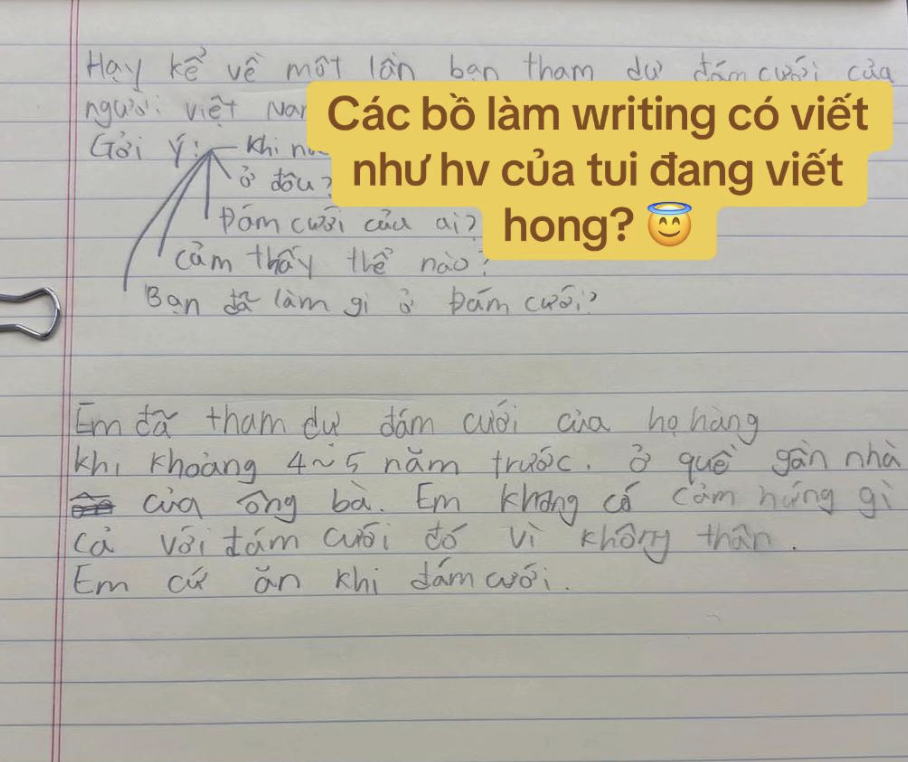 Hạy kể về một lần bạn tham dự đám cưới của
người việt Nam
Các bồ làm writing có viết
như hv của tui đang viết
hong? 😇
Gởi Ý: Khi
ở đâu?
Đám cưới của ai?
cảm thấy thế nào?
Bạn đã làm gì ở Đám cưới?
Em đã tham dự đám cưới của họ hàng
khi khoảng 4~5 năm trước. ở quề gần nhà
của ông bà. Em không có cảm hứng gì
cả với đám cưới đó vì không thân.
Em cứ ăn khi đám cưới.